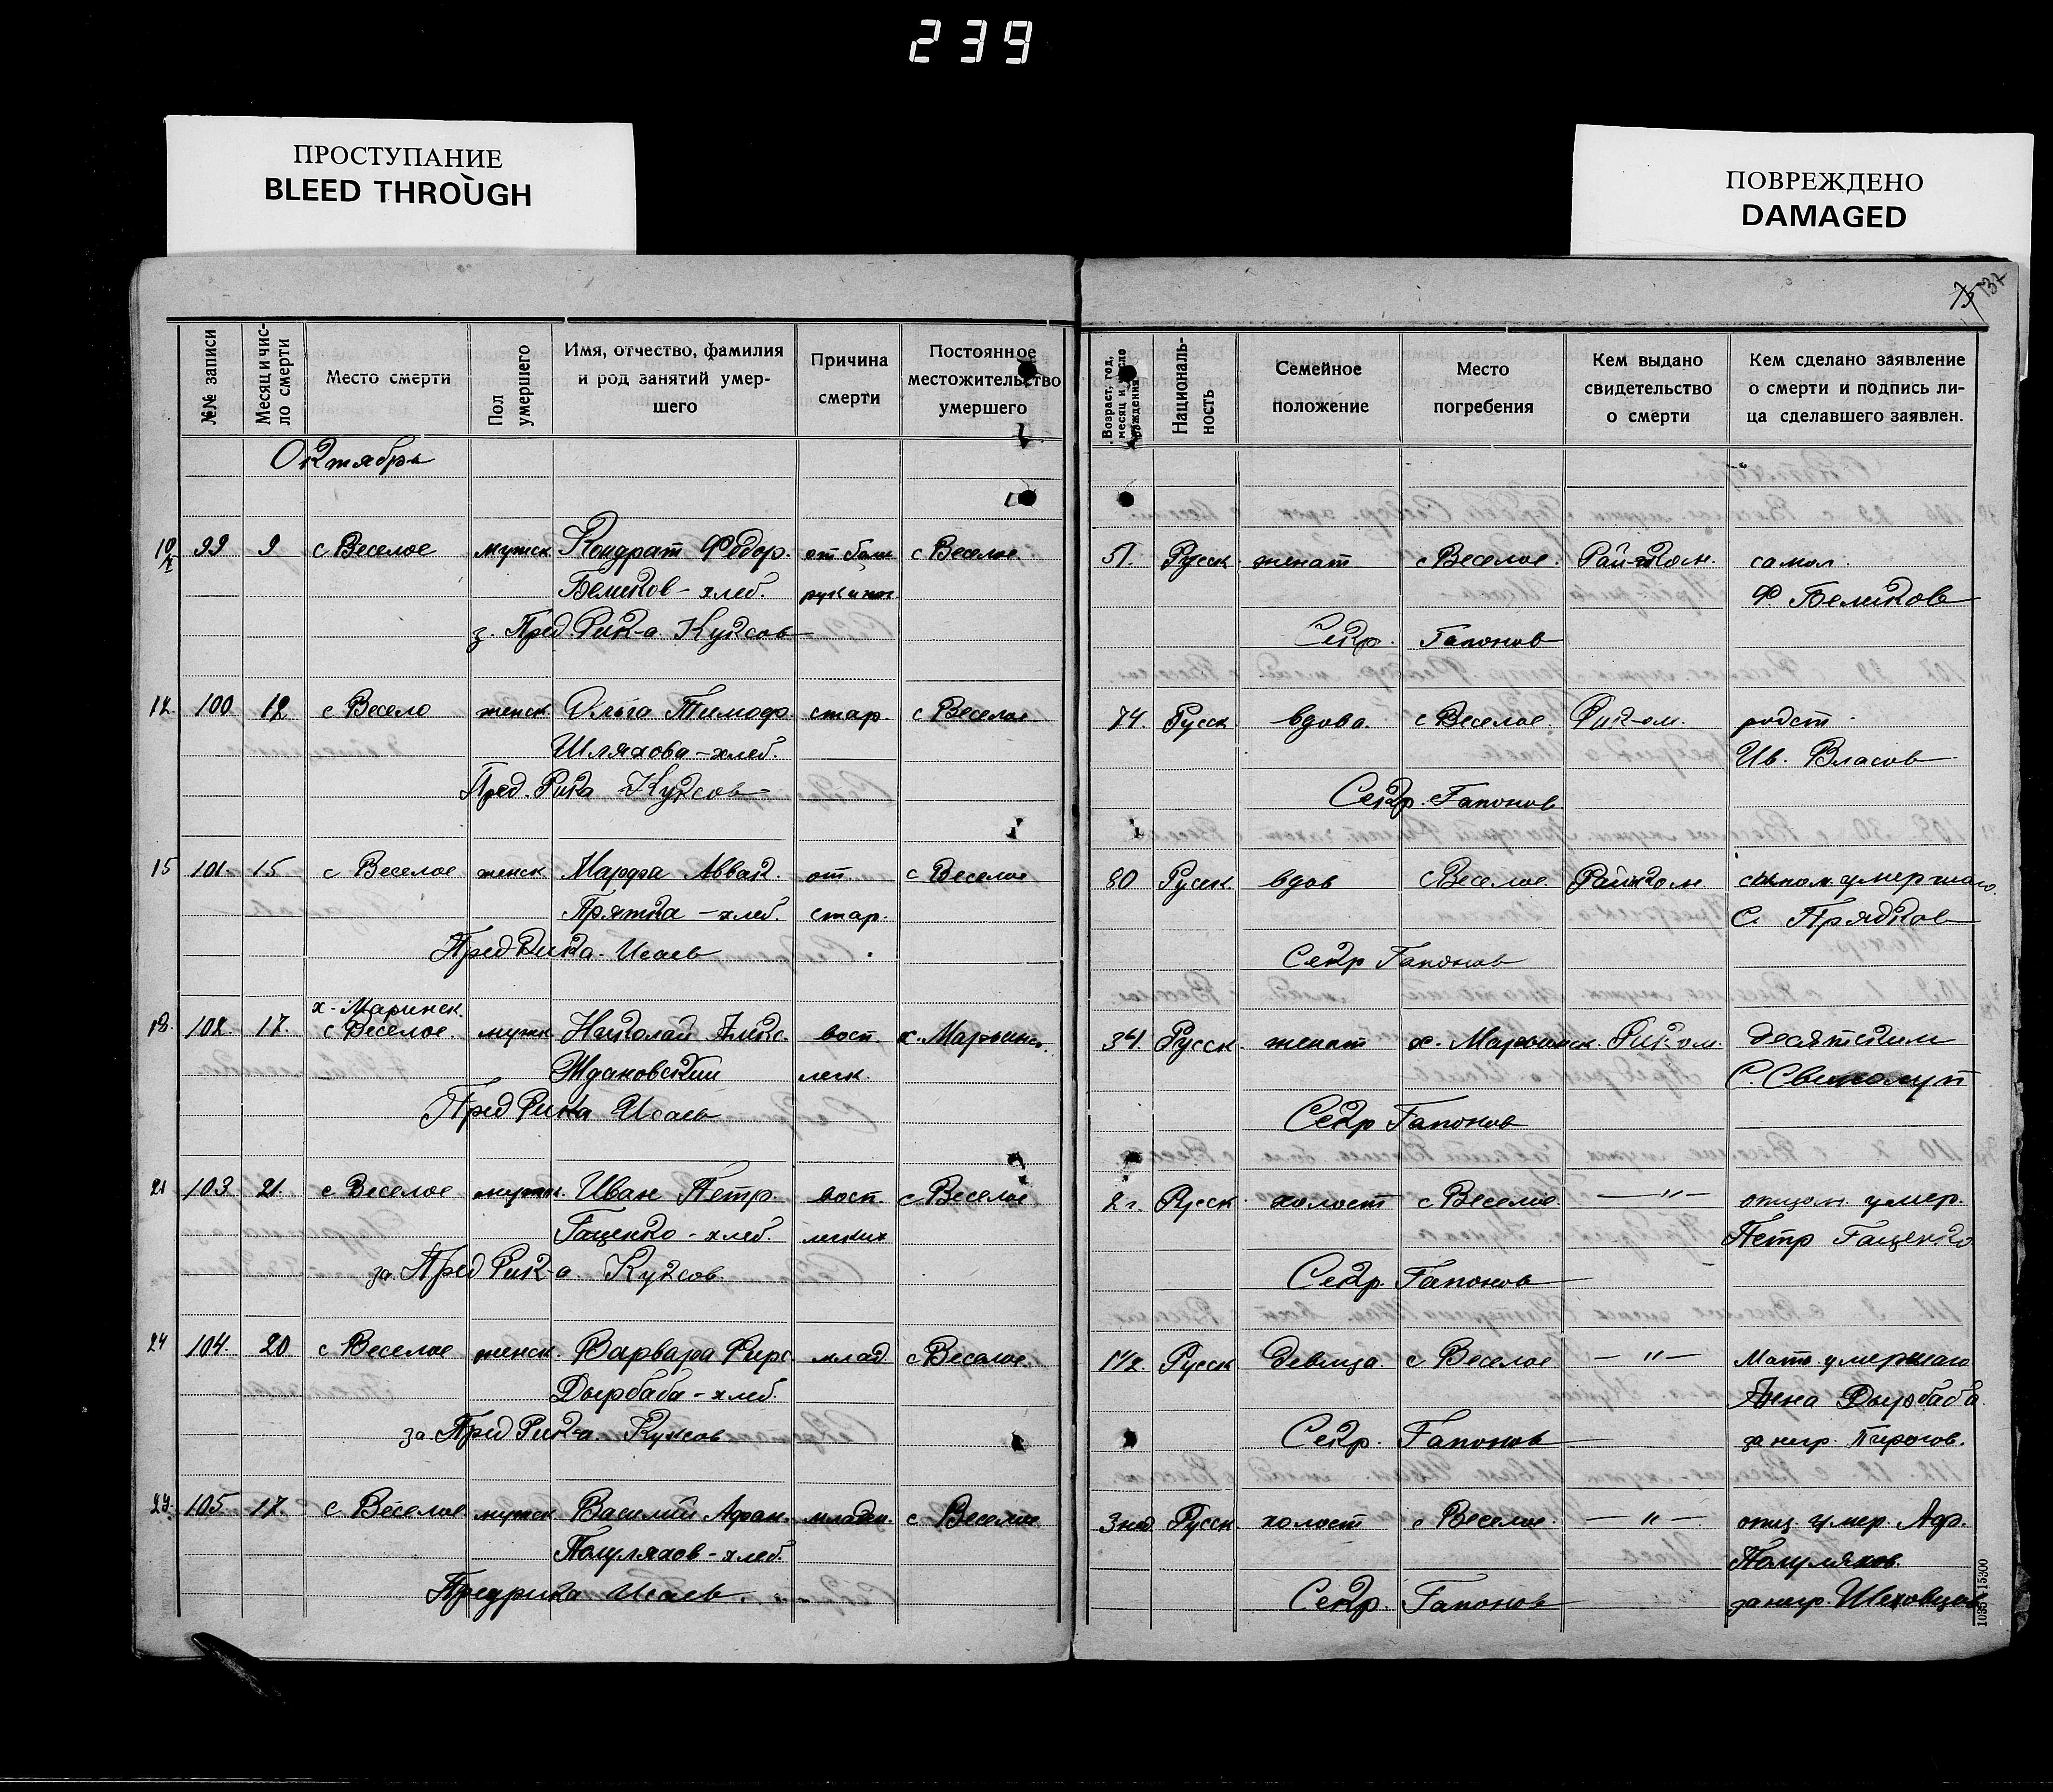 239
ПРОСТУПАНИЕ
BLEED THROUGH
ПОВРЕЖДЕНО
DAMAGED
75 137
№№ записи
Месяц и число смерти
Место смерти
Пол умершего
Имя, отчество, фамилия и род занятий умершего
Причина смерти
Постоянное местожительство умершего
Возраст, год, месяц и число рождения
Националь-ность
Семейное положение
Место погребения
Кем выдано свидетельство о смерти
Кем сделано заявление о смерти и подпись ли-ца сделавшего заявлен.
Октябрь
10/X 99 9 с Веселое мужск Кондрат Федор. от бол. с Веселое. 51. Русск. женат с Веселое. Рай-ком. самол.
Беликов - хлеб. рук и ног. Ф. Беликов
з. Пред. Рик-а Куксов Секр. Гапонов
12. 100 12 с Весело женск Ольга Тимоф. стар. с Веселое 74. Русск. вдова. с Веселое. Рик-ом. родст.
Шляхова - хлеб. Ив. Власов
Пред. Рика Куксов Секр. Гапонов
15 101. 15 с Веселое женск Марфа Аввак. от. с Веселое 80 Русск. вдов с Веселое. Райком сыном умершаго.
Прятка - хлеб. стар. С. Прядков
Пред Рика. Исаев Секр Гапонов
х - Маринск.
18. 102. 17. с Веселое. мужк Николай Алекс. восп х. Марьинск. 34. Русск. женат х. Марьинск. Риком. десятским
Ждановский легк. С. Свинолуп
Пред Рика Исаев Секр Гапонов
21 103 21. с Веселое мужск. Иван Петр. восп. с Веселое 2 г. Русск холост с Веселое. — " — отцом умер.
Гащенко - хлеб. легких Петр Гащенко
за Пред Рик-а Куксов Секр. Гапонов
24 104. 20 с Веселое женск. Варвара Фирс. млад. с Веселое. 1 1/2. Русск девица с Веселое — " — Мать умершаго
Дырбаба - хлеб. Анна Дырбаба
за Пред Рик-а. Куксов Секр. Гапонов за негр. Пирогов.
105. 17. с Веселое мужск Василий Афан. младен. с Веселое 3 нед Русск. холост с Веселое. — " — отц. умер. Аф.
Полуляхов - хлеб. Полуляхов
Предрика Исаев. Секр. Гапонов за негр. Шеховцов